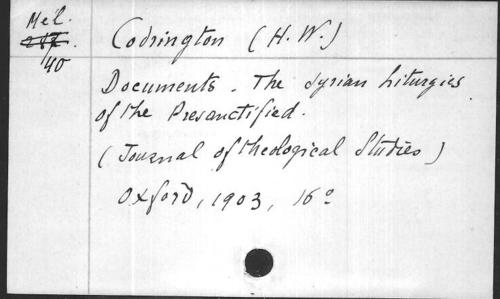 Mel. Codrington (H. W.)
40
Documents. The Syrian Liturgies
of the Presanctified.
(Journal of theological Studies)
Oxford, 1903, 16º